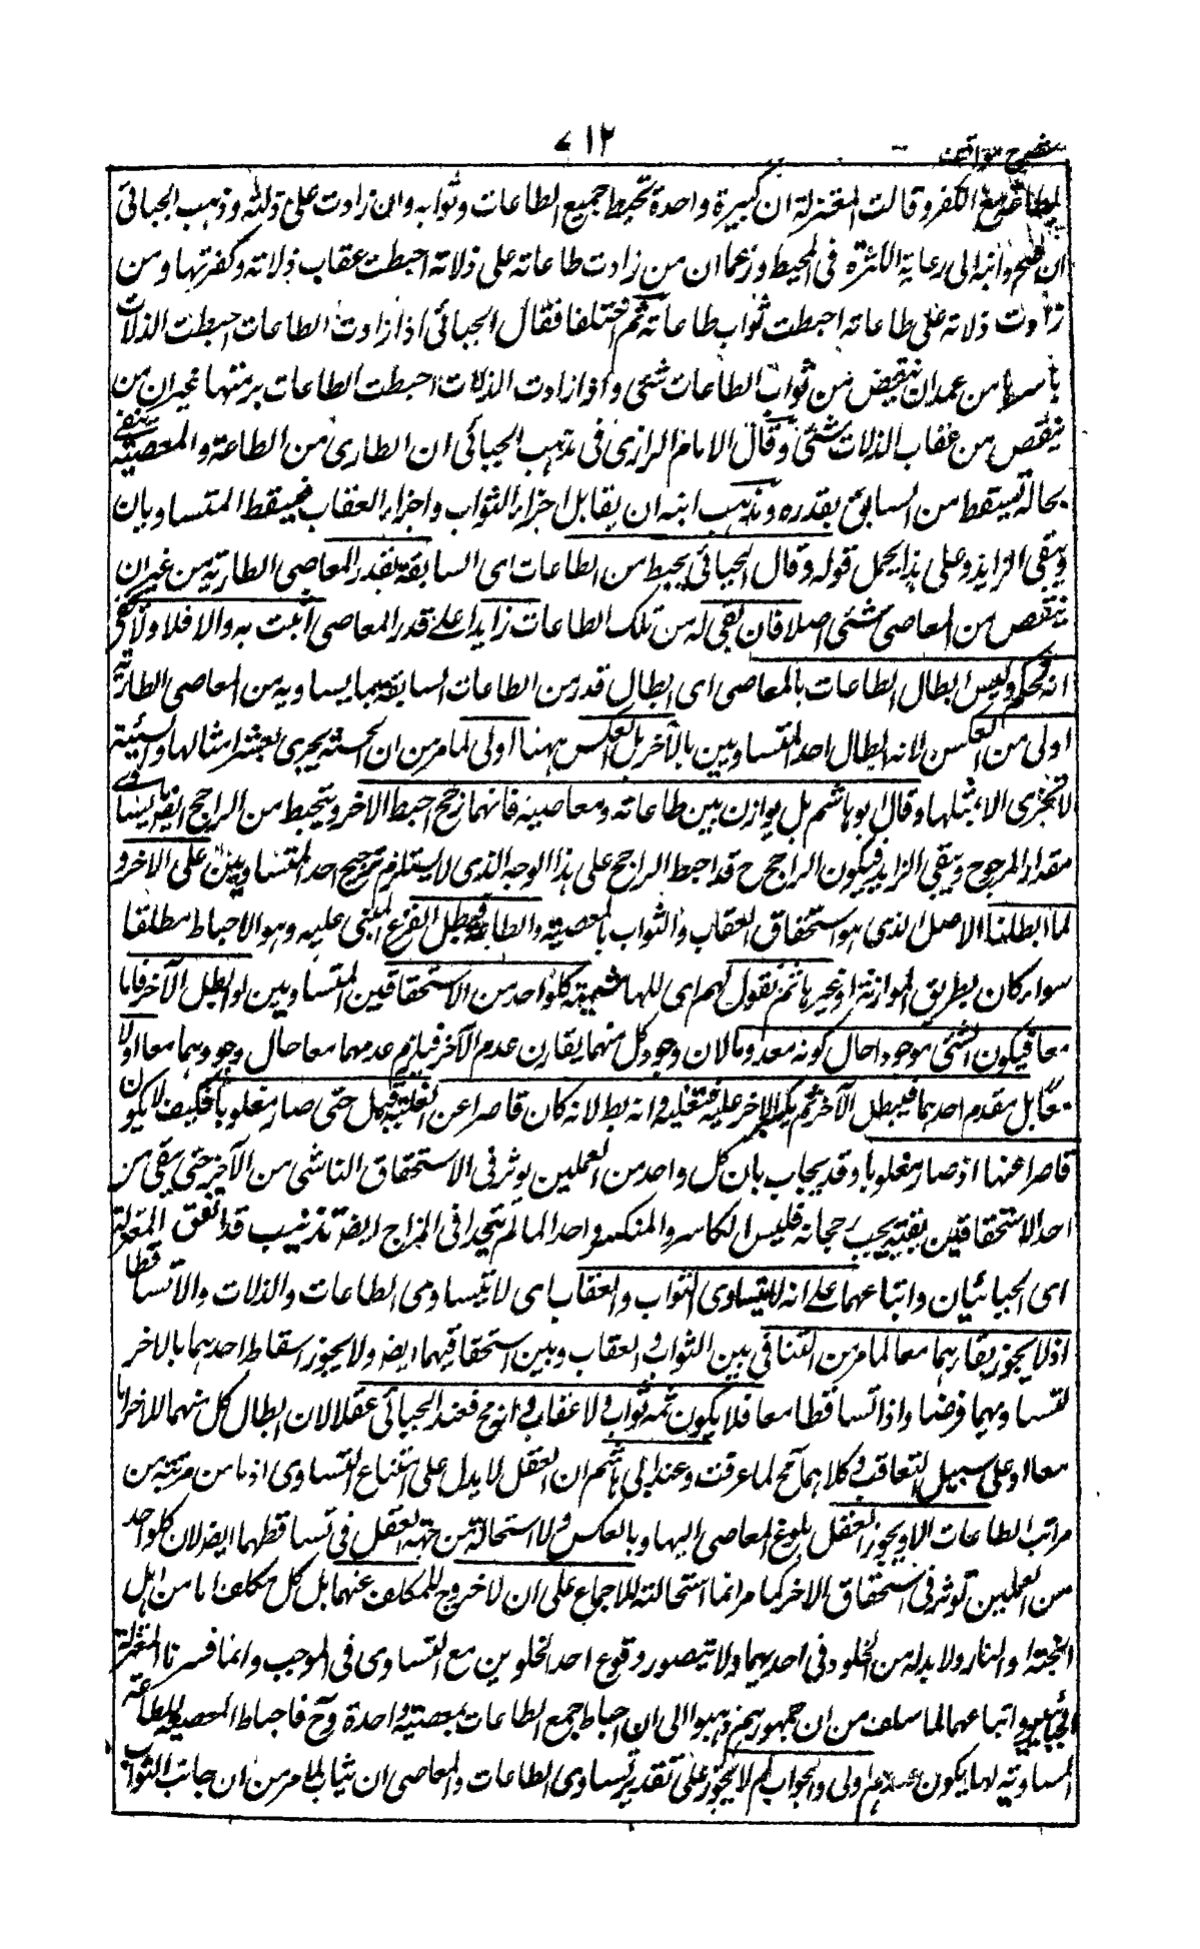 ٧١٢
شرح مواقف
للطاعة مع الكفر وقالت المعتزلة ان كبيرة واحدة تحبط جميع الطاعات وثوابه وان زادت على ذلته وذهب الجبائى
وابنه الى رعاية الكثرة فى المحبط وزعما ان من زادت طاعاته على ذلاته احبطت عقاب ذلاته وكفرتها ومن
زادت ذلاته على طاعاته احبطت ثواب طاعاته ثم اختلفا فقال الجبائى اذا زادت الطاعات احبطت الذلات
من غير ان ينقص من ثواب الطاعات شئى واذا زادت الذلات احبطت الطاعات برمتها غير ان من
ينقص من عقاب الذلات شئى وقال الامام الرازى فى مذهب الجبائى ان الطارى من الطاعة والمعصية يبقى
بحاله تسقط من السابق بقدره ومذهب ابنه ان يقابل اجزاء الثواب واجزاء العقاب فيسقط المتساويان
ويبقى الزايد وعلى هذا يحمل قوله وقال الجبائى يحبط من الطاعات اى السابقة بقدر المعاصى الطارية من غير ان
ينتقص من المعاصى شئى اصلا فان بقى له من تلك الطاعات زايدا على قدر المعاصى اثيب به والا فلا ولا يخفى
انه تحكم وليس ابطال الطاعات بالمعاصى اى ابطال قدر من الطاعات السابقة بما يساويه من المعاصى الطارية
اولى من العكس لانه ابطال احد المتساويين بالآخر بل العكس ههنا اولى لما مر من ان الحسنة يجزى بعشر امثالها والسيئة
لا تجزى الا بمثلها وقال ابو هاشم بل يوازن بين طاعاته ومعاصيه فايهما رجح احبط الآخر ويحبط من الراجح ايضا ما يساوى
مقدار المرجوح ويبقى الزايد فيكون الراجح ح قد احبط الراجح على هذا الوجه الذى لا يستلزم ترجيح احد المتساويين على الآخر و
لما ابطلنا الاصل الذى هو استحقاق العقاب والثواب بالمعصية والطاعة فبطل الفرع المبتنى عليه وهو الاحباط مطلقا
سواء كان بطريق الموازنة او غيرها ثم نقول لهم اى للبهاشمية كل واحد من الاستحقاقين المتساويين لو ابطل الآخر فاما
معا فيكون الشئى موجودا حال كونه معدوما لان وجود كل منهما يقارن عدم الآخر فيلزم عدمهما معا حال وجودهما معا اولا
معا بل مقدم احدهما فيبطل الآخر ثم يكر الآخر عليه فيغلبه وانه بط لانه كان قاصرا عن الغلبة قبل حتى صار مغلوبا فكيف لا يكون
قاصرا عنها اذ صار مغلوبا وقد يجاب بان كل واحد من العملين يوثر فى الاستحقاق الناشى من الآخر حتى يبقى من
احد الاستحقاقين بقية يجب رجحانه فليس الكاسر والمنكسر واحدا لما لم يتحدا فى المزاج ايضا تذنيب قد اتفق المعتزلة
اى الجبائيان واتباعهما على انه لا يتساوى الثواب والعقاب اى لا يتساوى الطاعات والذلات والا تساقطا
اذ لا يجوز بقاءهما معا لما مر من التنافى بين الثواب والعقاب وبين استحقاقيهما ايضا ولا يجوز اسقاط احدهما بالآخر
لتساويهما فرضا واذا تساقطا معا فلا يكون ثمه ثواب ولا عقاب وانه مح فعند الجبائى عقلا لان ابطال كل منهما للآخر اما
معا او على سبيل التعاقب وكلاهما مح لما عرفت وعند ابى هاشم ان العقل لا يدل على امتناع التساوى اذ ما من مرتبة من
مراتب الطاعات الا ويجوز العقل بلوغ المعاصى اليها وبالعكس ولا استحالة من جهة العقل فى تساقطهما ايضا لان كل واحد
من العملين توثر فى استحقاق الآخر كما مر انما استحالته للاجماع على ان لا خروج للمكلف عنهما بل كل مكلف اما من اهل
الجنة او النار ولا بد له من الخلود فى احديهما ولا يتصور وقوع احد الخلودين مع التساوى فى الموجب وانما فسرنا المعتزلة
بالجبائيين واتباعهما لما سلف من ان جمهورهم ذهبوا الى ان احباط جمع الطاعات بمعصية واحدة وح فاحباط المعصية للطاعة
المساوية لها يكون عندهم اولى والجواب لم لا يجوز على تقدير تساوى الطاعات والمعاصى ان يثاب لما مر من ان جانب الثواب